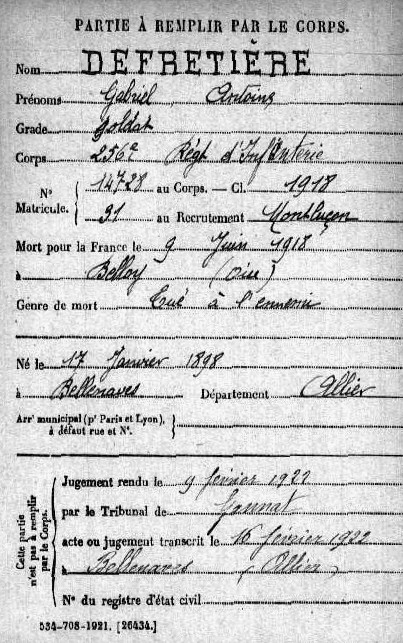 PARTIE À REMPLIR PAR LE CORPS.
Nom DEFRETIÈRE
Prénoms Gabriel, Antoine
Grade Soldat
Corps 256e Régt d'Infanterie
N° Matricule. { 14728 au Corps. — Cl. 1918
31 au Recrutement Montluçon
Mort pour la France le 9 Juin 1918
à Belloy (Oise)
Genre de mort Tué à l'ennemi
Né le 17 Janvier 1898
à Bellenaves Département Allier
Arrt municipal (pr Paris et Lyon),
à défaut rue et N°. }
Cette partie n'est pas à remplir par le Corps. {
Jugement rendu le 9 février 1922
par le Tribunal de Gannat
acte ou jugement transcrit le 16 février 1922
à Bellenaves (Allier)
N° du registre d'état civil
534-708-1921. [26434.]